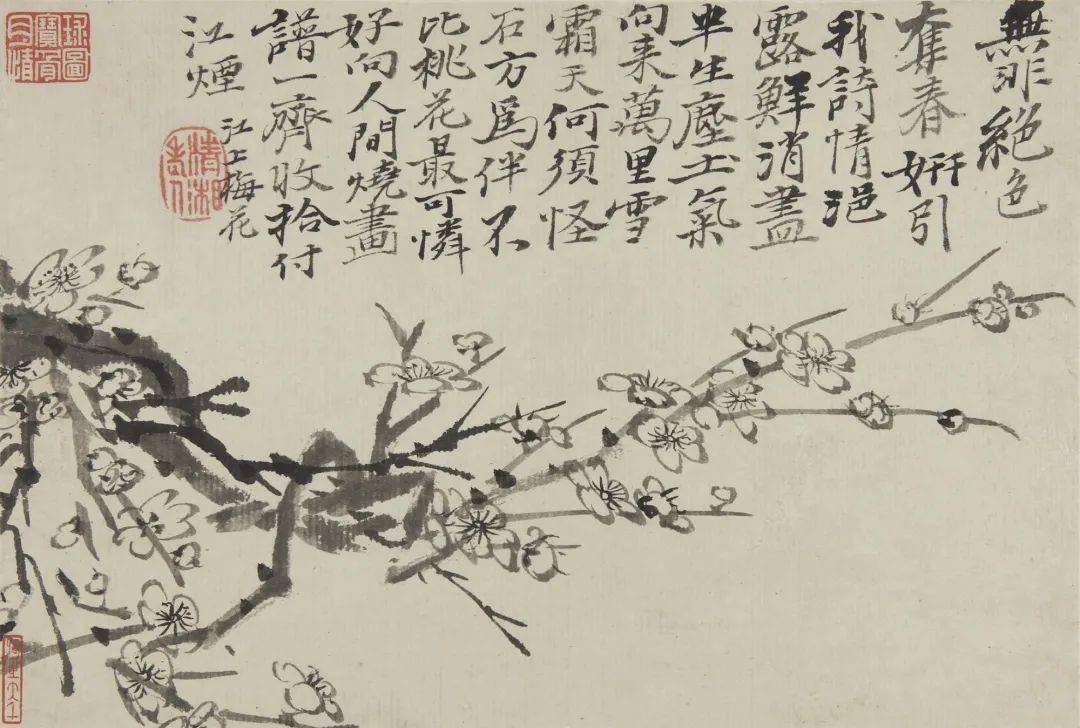 無非絕色
奪春妍引
我詩情浥
露鮮消盡
半生塵土氣
向来萬里雪
霜天何須怪
石方爲伴不
比桃花最可憐
好向人間燒畫
譜一齊收拾付
江煙
江上梅花
清湘老人
球圖寶骨肉情